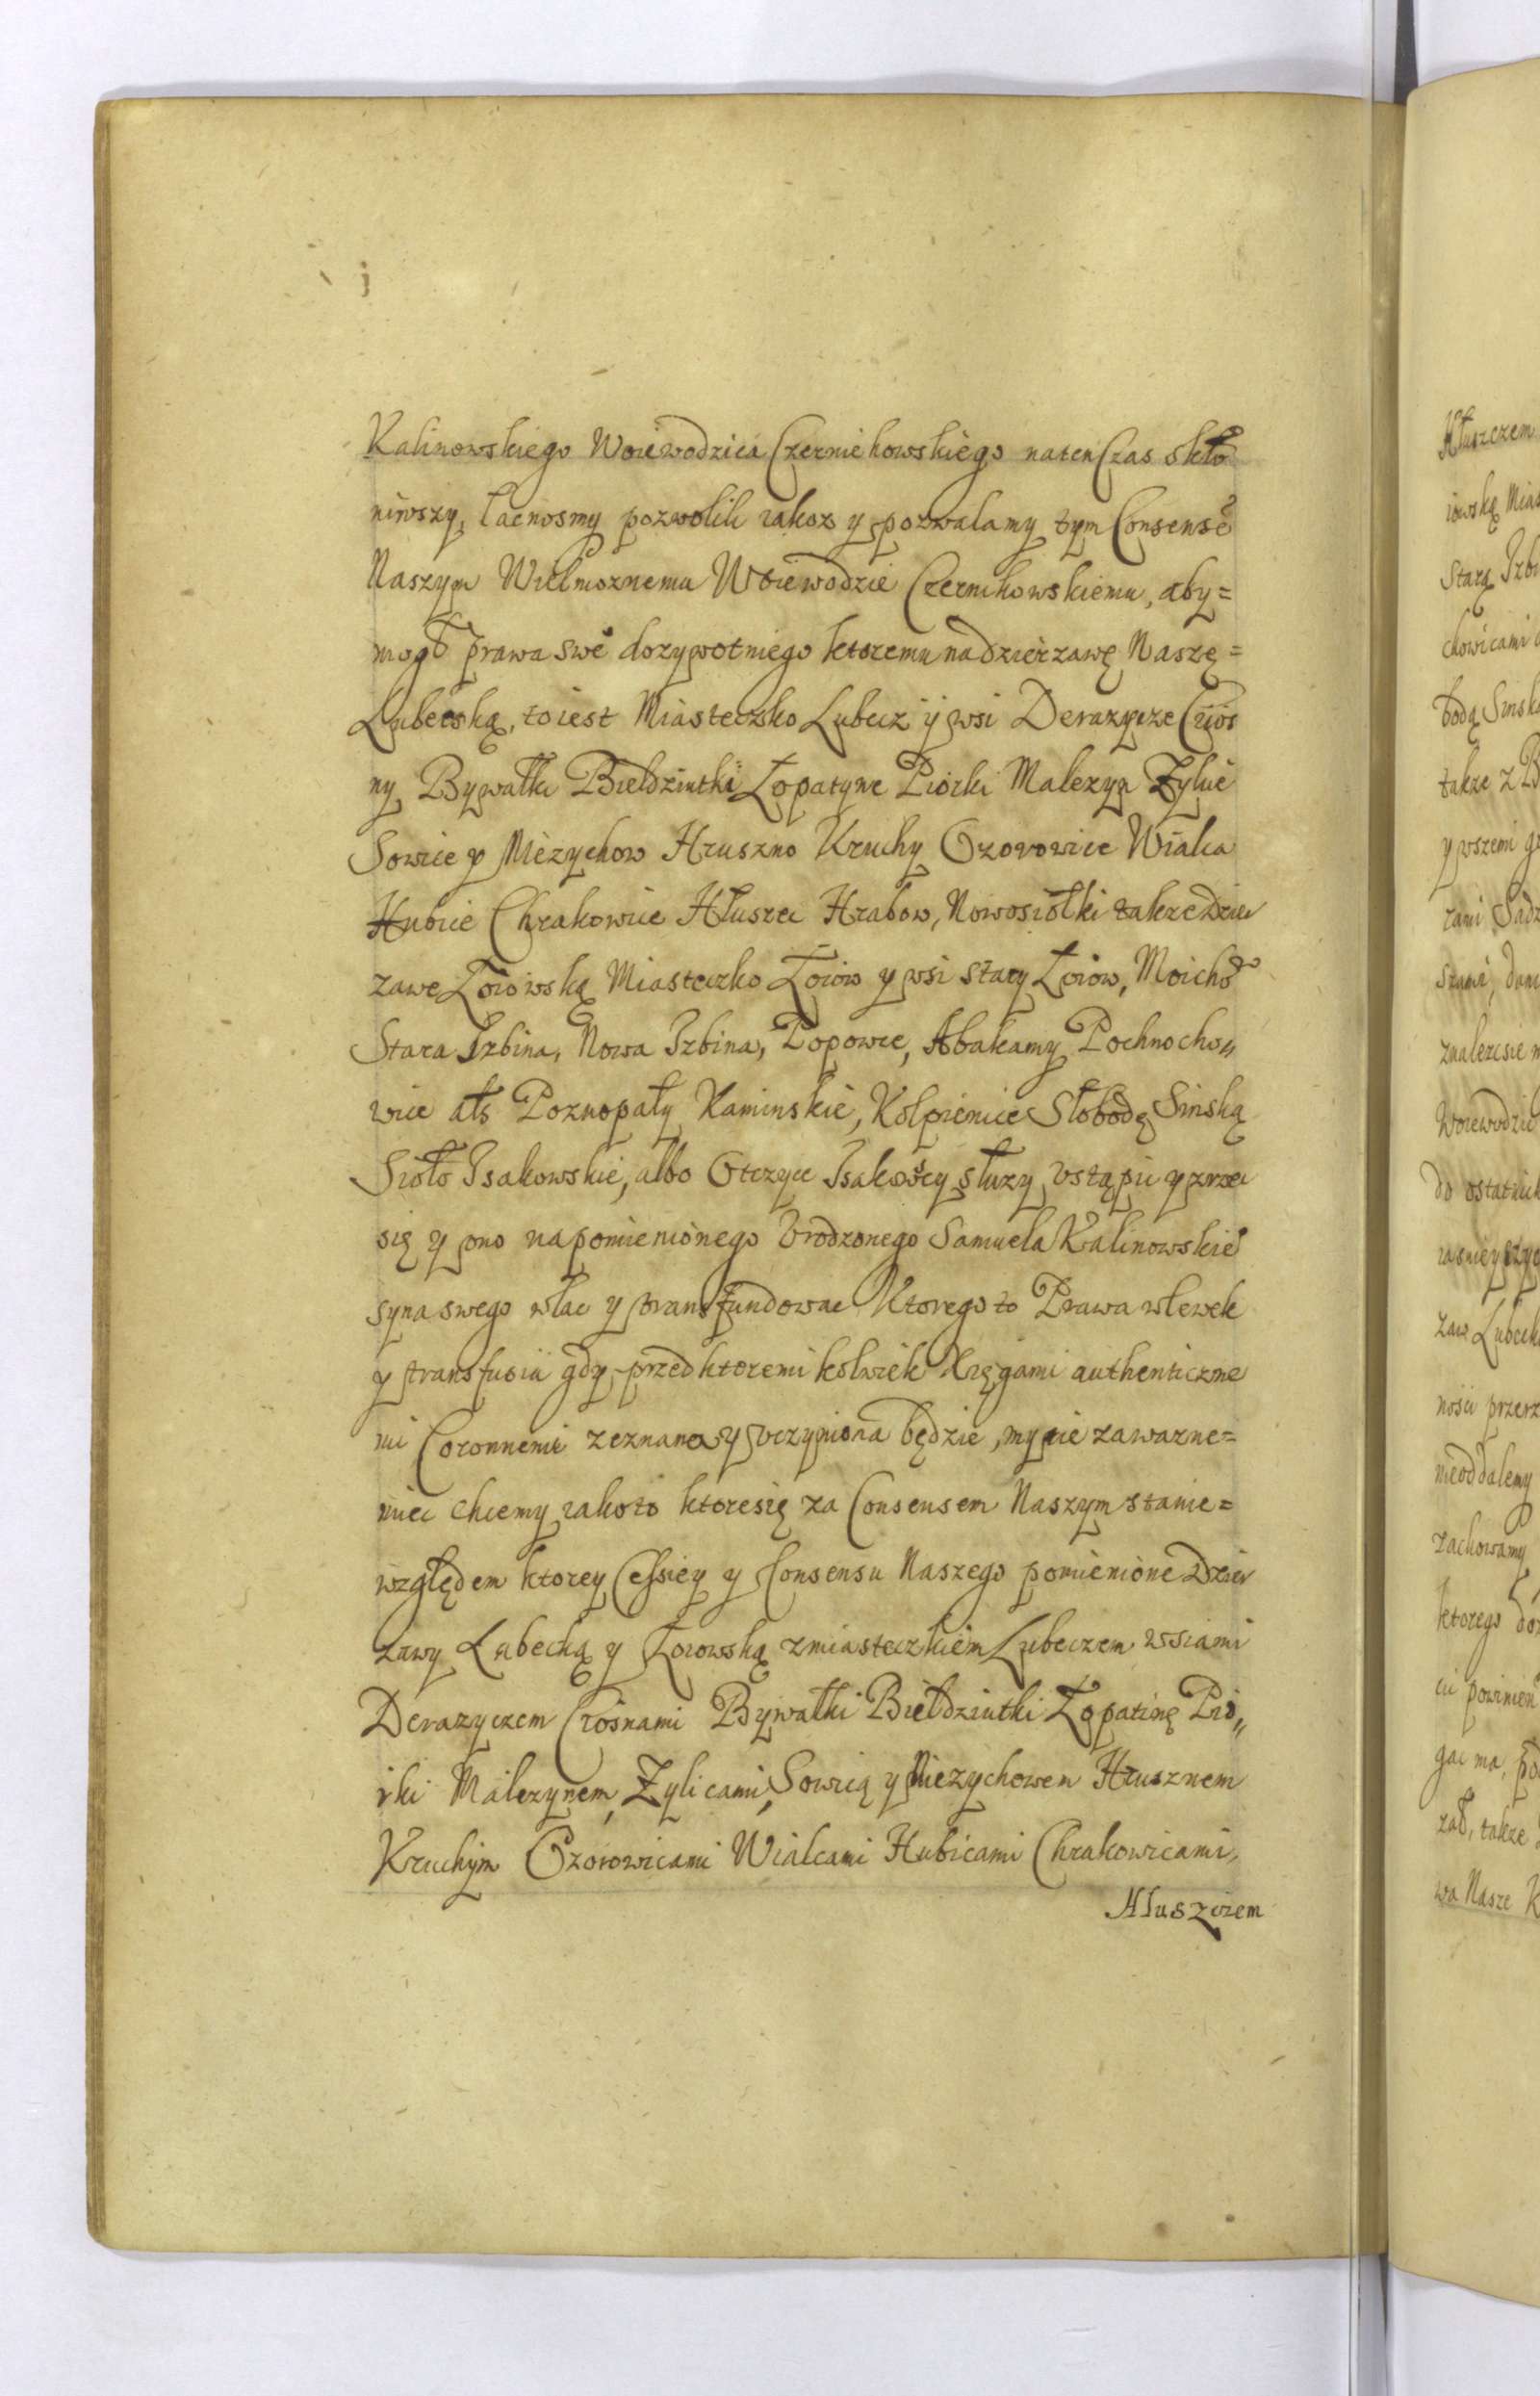 Kalinowskiego Woiewodzica Czerniehowskiego naten Czas skło
niwszy, łacnosmy pozwolili iakoz y pozwalamy tym Consensē
Naszym Wielmoznemu Woiewodzie Czernihowskiemu, aby=
mogł prawa swe dozywotniego ktoremu na dzierzawę Naszę=
Lubecską, to iest Miasteczko Lubecz y wsi Derazycze Crios
ny Bywałki Bieldziutki Łopatyne Piorki Malezyn Zylice
Sowice y Niezychow Hruszno Kruchy Ozorowice Wialca
Hubice Chrakowice Hłuszec Hrabow, Nowosiołki takze Dzier
zawe Łoiowską Miasteczko Łoiow y wsi stary Łoiow, Moicho
Stara Izbina, Nowa Izbina, Popowce, Abakamy Pochnocho„
wice als Poznopały Kaminskie, Kolpienice Słobodę Sinską
Sioło Isakowskie, albo Otczyce Isakowcy słuzy vstąpic y zrzec
się y ono na pomienionego Vrodzonego Samuela Kalinowskie
syna swego wlac y transfundowac Ktorego to Prawa wlewek
y transfusia gdy przed ktoremi kolwiek Xięgami authenticzne
mi Coronnemi zeznana y vczyniona będzie, my ie za wazne=
miec chcemy iako to ktore się za Consensem Naszym stanie=
względem ktorey Cessiey y Consensu Naszego pomienione Dzier
zawy Lubecką y Łoiowską z miasteczkiem Lubeczem wsiami
Derazyczem Criosnami Bywałki Bieldziutki Łopatinę Pio„
rki Malezynem, Zylicami, Sowicą y Niezychowem Hrusznem
Kruchym Ozorowicami Wialcami Hubicami Chrakowicami,
Hłuszczem
Hłuszczem
iowską Mias
Starą Izbi
chowicami
bodą Sinską
takze z B
y wszemi
rami Sadz
znalezc sie m
Woiewodzie
do ostatnie
zaw Lubeck
nosci przerz
nieoddalemy
zachowamy
ktorego do
ci powinien
gac ma, po
zał, takze
wa Nasze K